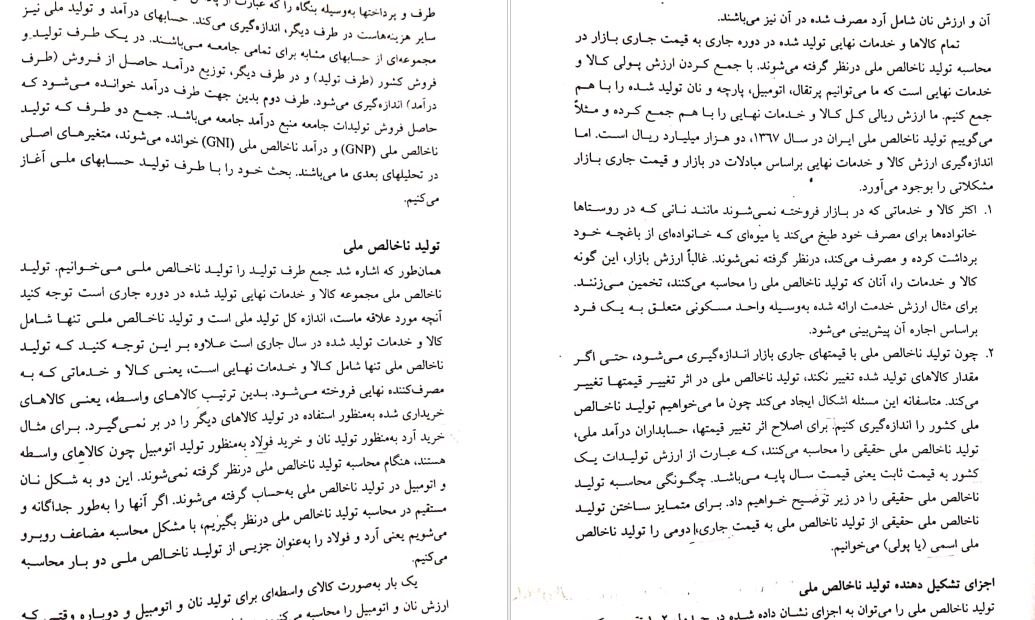 طرف و پرداختها به‌وسیله بنگاه را که عبارت از
سایر هزینه‌هاست در طرف دیگر، اندازه‌گیری می‌کند. حسابهای درآمد و تولید ملی نیز
مجموعه‌ای از حسابهای مشابه برای تمامی جامعه می‌باشند. در یک طرف تولید و
فروش کشور (طرف تولید) و در طرف دیگر، توزیع درآمد حاصل از فروش (طرف
درآمد) اندازه‌گیری می‌شود. طرف دوم بدین جهت طرف درآمد خوانده می‌شود که
حاصل فروش تولیدات جامعه منبع درآمد جامعه می‌باشد. جمع دو طرف که تولید
ناخالص ملی (GNP) و درآمد ناخالص ملی (GNI) خوانده می‌شوند، متغیرهای اصلی
در تحلیلهای بعدی ما می‌باشند. بحث خود را با طرف تولید حسابهای ملی آغاز
می‌کنیم.
تولید ناخالص ملی
همان‌طور که اشاره شد جمع طرف تولید را تولید ناخالص ملی می‌خوانیم. تولید
ناخالص ملی مجموعه کالا و خدمات نهایی تولید شده در دوره جاری است توجه کنید
آنچه مورد علاقه ماست، اندازه کل تولید ملی است و تولید ناخالص ملی تنها شامل
کالا و خدمات تولید شده در سال جاری است علاوه بر این توجه کنید که تولید
ناخالص ملی تنها شامل کالا و خدمات نهایی است، یعنی کالا و خدماتی که به
مصرف‌کننده نهایی فروخته می‌شود. بدین ترتیب کالاهای واسطه، یعنی کالاهای
خریداری شده به‌منظور استفاده در تولید کالاهای دیگر را در بر نمی‌گیرد. برای مثال
خرید آرد به‌منظور تولید نان و خرید فولاد به‌منظور تولید اتومبیل چون کالاهای واسطه
هستند، هنگام محاسبه تولید ناخالص ملی درنظر گرفته نمی‌شوند. این دو به شکل نان
و اتومبیل در تولید ناخالص ملی به‌حساب گرفته می‌شوند. اگر آنها را به‌طور جداگانه و
مستقیم در محاسبه تولید ناخالص ملی درنظر بگیریم، با مشکل محاسبه مضاعف روبرو
می‌شویم یعنی آرد و فولاد را به‌عنوان جزیی از تولید ناخالص ملی دو بار محاسبه
می‌کنیم.
یک بار به‌صورت کالای واسطه‌ای برای تولید نان و اتومبیل و دوباره وقتی که
ارزش نان و اتومبیل را محاسبه
آن و ارزش نان شامل آرد مصرف شده در آن نیز می‌باشند.
تمام کالاها و خدمات نهایی تولید شده در دوره جاری به قیمت جاری بازار در
محاسبه تولید ناخالص ملی درنظر گرفته می‌شوند. با جمع کردن ارزش پولی کالا و
خدمات نهایی است که ما می‌توانیم پرتقال، اتومبیل، پارچه و نان تولید شده را با هم
جمع کنیم. ما ارزش ریالی کل کالا و خدمات نهایی را با هم جمع کرده و مثلاً
می‌گوییم تولید ناخالص ملی ایران در سال ۱۳۶۷، دو هزار میلیارد ریال است. اما
اندازه‌گیری ارزش کالا و خدمات نهایی براساس مبادلات در بازار و قیمت جاری بازار
مشکلاتی را بوجود می‌آورد.
۱. اکثر کالا و خدماتی که در بازار فروخته نمی‌شوند مانند نانی که در روستاها
خانواده‌ها برای مصرف خود طبخ می‌کند یا میوه‌ای که خانواده‌ای از باغچه خود
برداشت کرده و مصرف می‌کند، درنظر گرفته نمی‌شوند. غالباً ارزش بازار، این گونه
کالا و خدمات را، آنان که تولید ناخالص ملی را محاسبه می‌کنند، تخمین می‌زنند.
برای مثال ارزش خدمت ارائه شده به‌وسیله واحد مسکونی متعلق به یک فرد
براساس اجاره آن پیش‌بینی می‌شود.
۲. چون تولید ناخالص ملی با قیمتهای جاری بازار اندازه‌گیری می‌شود، حتی اگر
مقدار کالاهای تولید شده تغییر نکند، تولید ناخالص ملی در اثر تغییر قیمتها تغییر
می‌کند. متاسفانه این مسئله اشکال ایجاد می‌کند چون ما می‌خواهیم تولید ناخالص
ملی کشور را اندازه‌گیری کنیم. برای اصلاح اثر تغییر قیمتها، حسابداران درآمد ملی،
تولید ناخالص ملی حقیقی را محاسبه می‌کنند، که عبارت از ارزش تولیدات یک
کشور به قیمت ثابت یعنی قیمت سال پایه می‌باشد. چگونگی محاسبه تولید
ناخالص ملی حقیقی را در زیر توضیح خواهیم داد. برای متمایز ساختن تولید
ناخالص ملی حقیقی از تولید ناخالص ملی به قیمت جاری، دومی را تولید ناخالص
ملی اسمی (یا پولی) می‌خوانیم.
اجزای تشکیل دهنده تولید ناخالص ملی
تولید ناخالص ملی را می‌توان به اجزای نشان داده شده در جدول